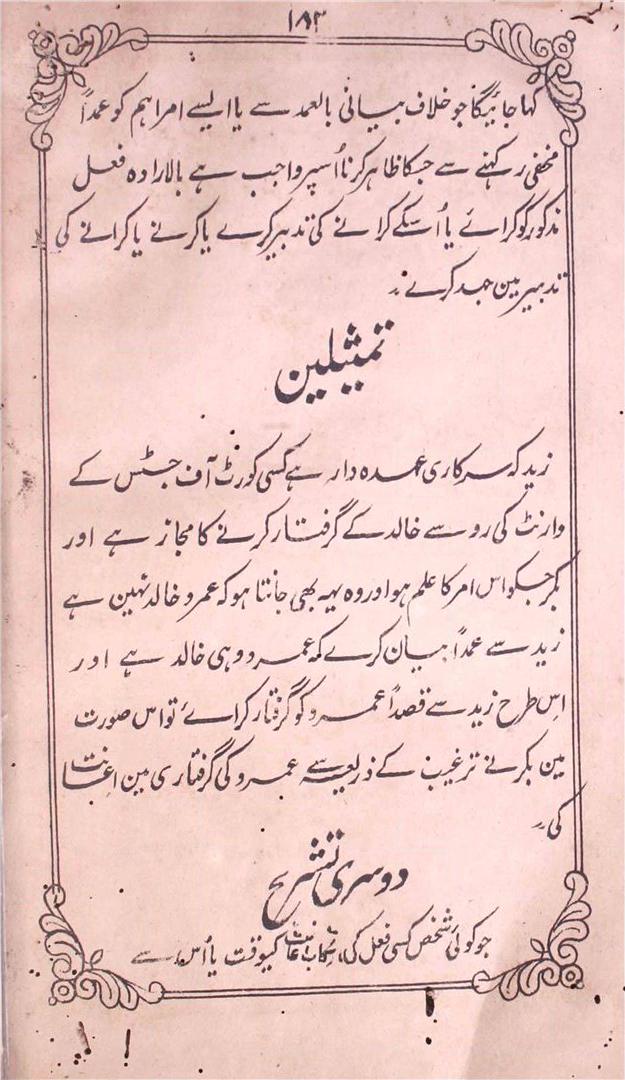 ۱۸۳
کہا جائیگا جو خلاف بیانی بالعمد سے یا ایسے امر اہم کو عمداً
مخفی رکہنے سے جسکا ظاہر کرنا اُسپر واجب ہے بالارادہ فعل
مذکور کو کرائے یا اُسکے کرانے کی تدبیر کرے یا کرنے یا کرانے کی
تدبیر مین جہد کرے ۔
تمثیلین
زید کہ سرکاری عہدہ دار ہے کسی کورٹ آف جسٹس کے
وارنٹ کی رو سے خالد کے گرفتار کرنے کا مجاز ہے اور
بکر جسکو اس امر کا علم ہو اور وہ یہہ بھی جانتا ہو کہ عمرو خالد نہین ہے
زید سے عمداً بیان کرے کہ عمرو وہی خالد ہے اور
اس طرح زید سے قصداً عمرو کو گرفتار کرائے تو اس صورت
مین بکر نے ترغیب کے ذریعہ سے عمرو کی گرفتاری مین اعانت
کی ۔
دوسری تشریح
جو کوئی شخص کسی فعل کی ارتکاب کیوقت یا اُس سے